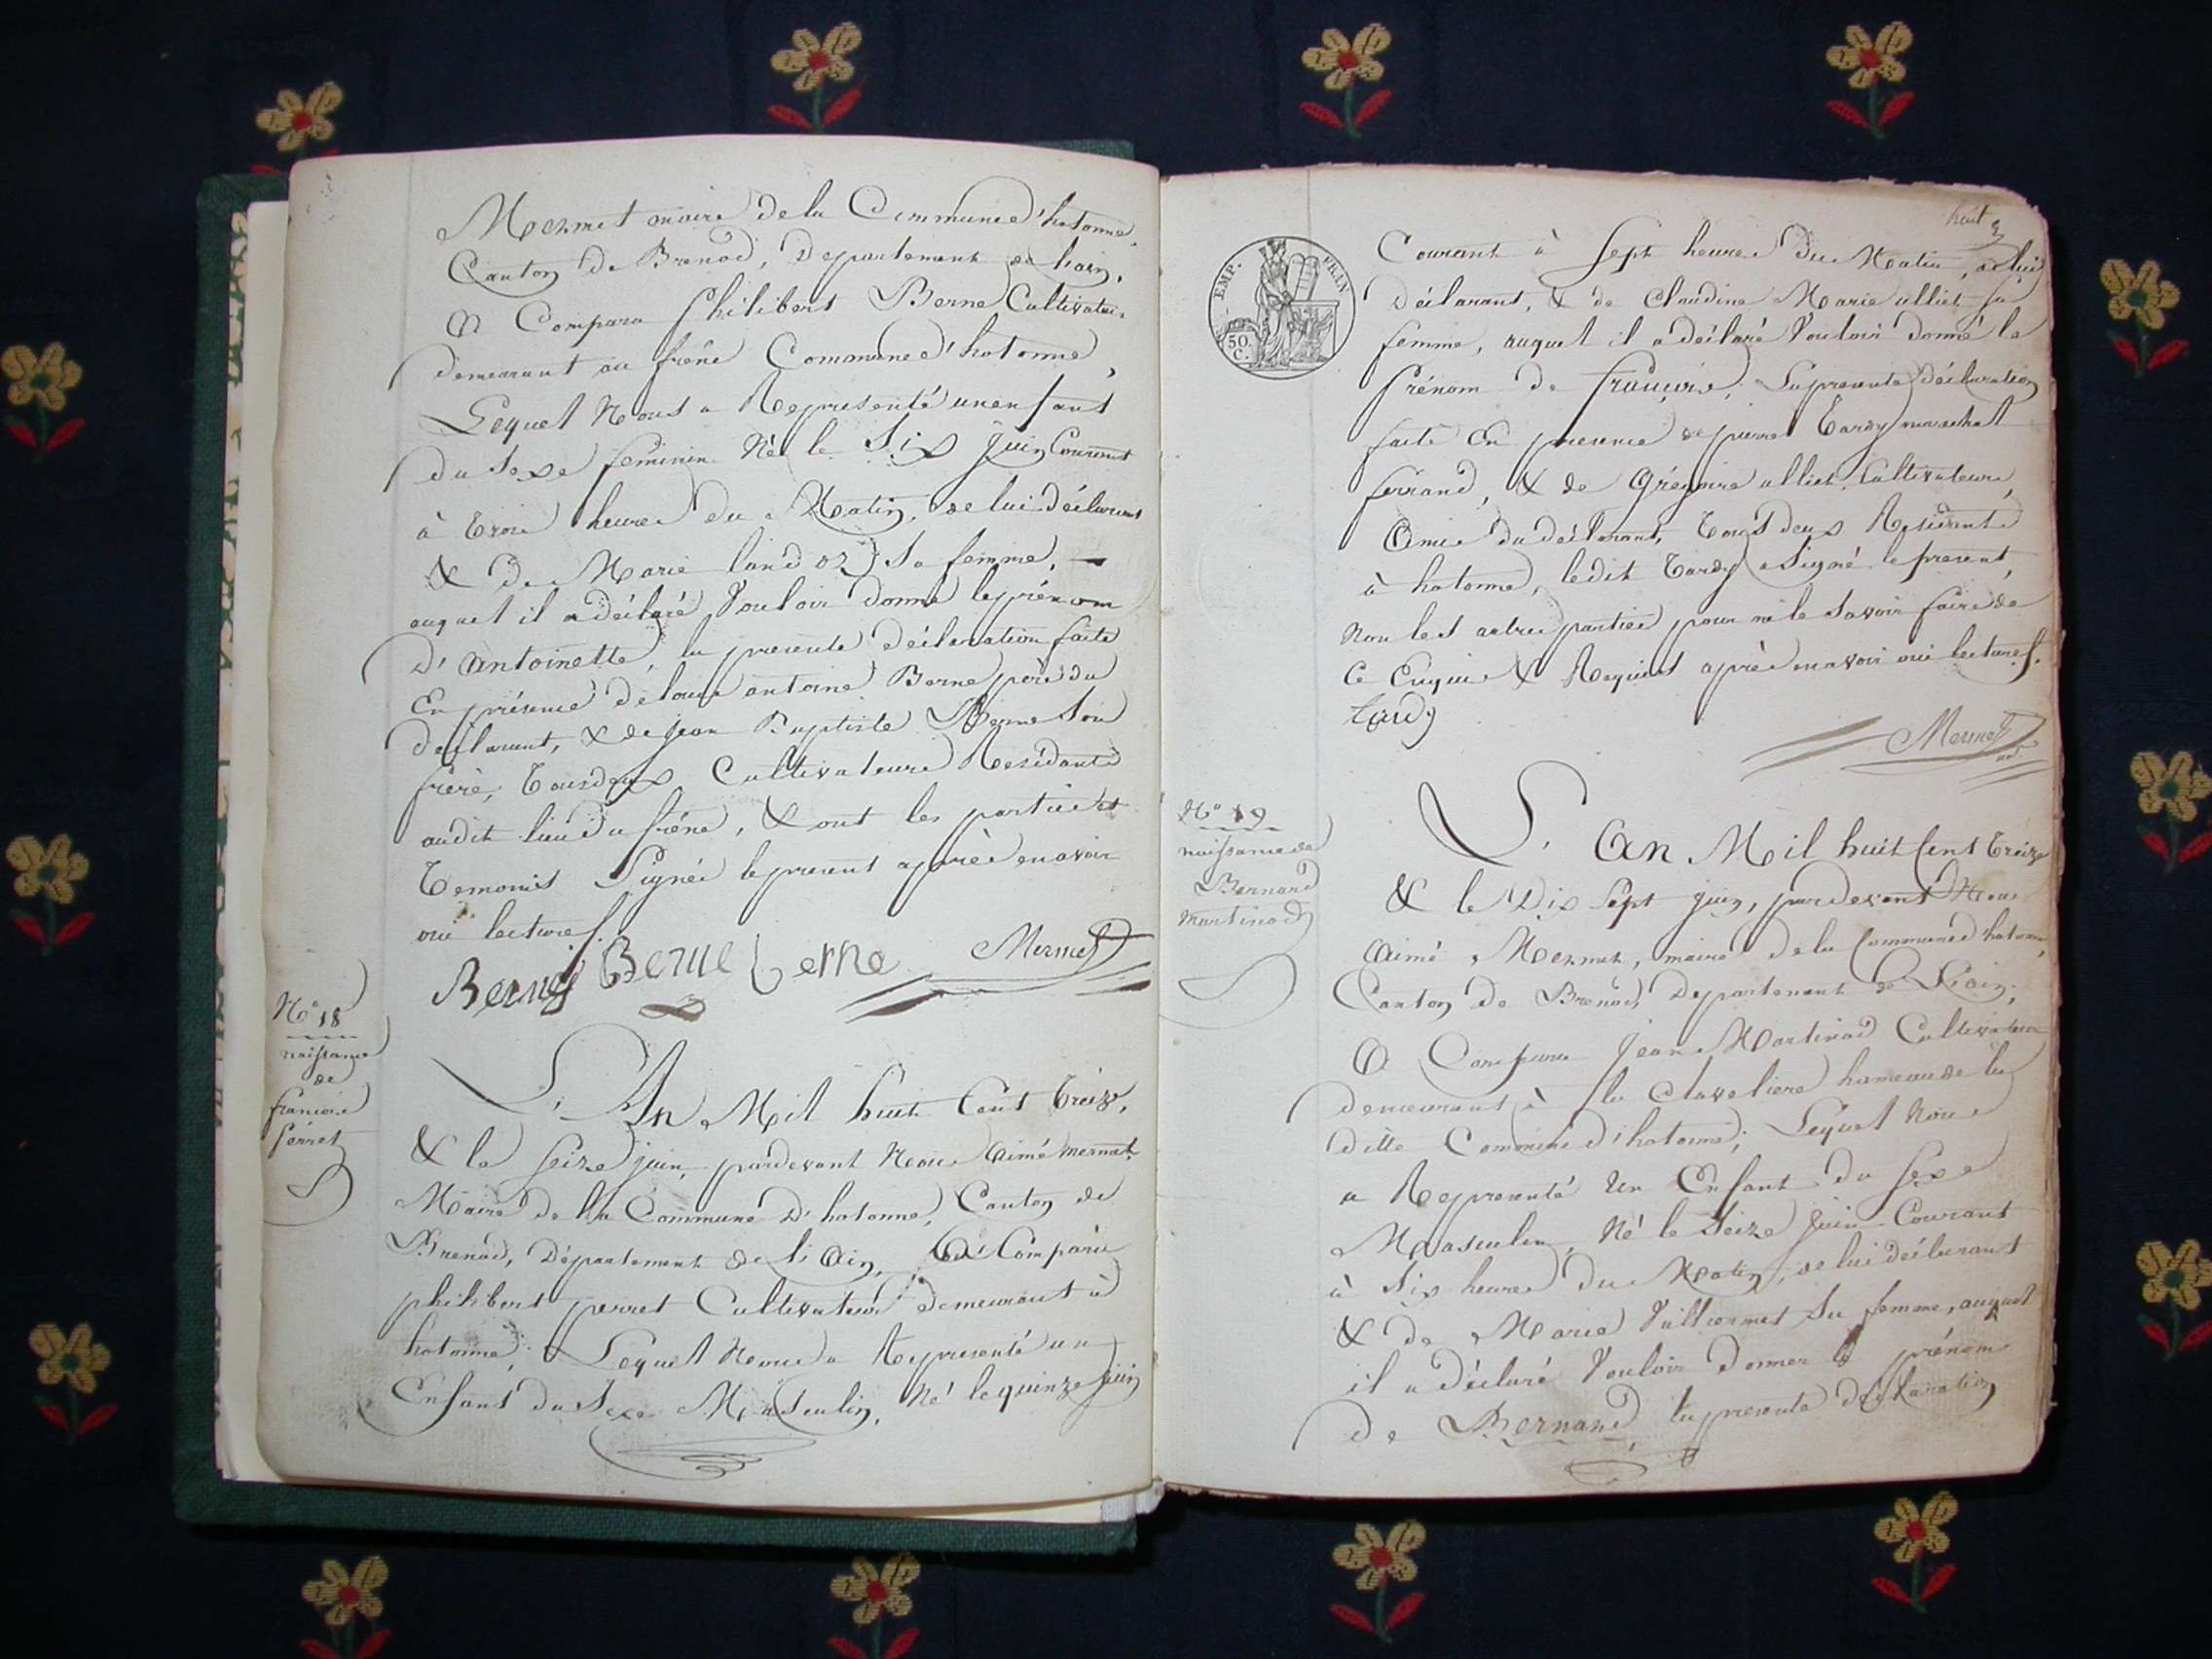 Mermet maire de la Commune d'hotonne,
Canton de Brenod, Departement de l'ain,
a Comparu philibert Berne Cultivateur
demeurant au frêne Commune d'hotonne,
Lequel Nous a Representé un enfant
du sexe féminin Né le Six Juin Courant
à trois heures du Matin, de lui déclarant
& de Marie landoz sa femme,
auquel il a déclaré Vouloir donné le prénom
D'antoinette, la presente déclaration faite
En présence de louis antoine Berne père du
declarant, & de jean Baptiste Berne Son
frère, tous deux Cultivateurs Résidants
audit lieu du frêne, & ont les parties et
temoins Signés le present après en avoir
oui lecture.
Berne Berne berne Mermet
N° 18
naissance
de
françois
perret
L'An Mil huit Cent treize,
& le seize juin pardevant Nous aimé mermet
Maire de la Commune D'hotonne, Canton de
Brenod, Département de l'Ain, a Comparu
philibert perret Cultivateur demeurant à
hotonne; Lequel Nous a Representé un
Enfant du Sexe Masculin, Né le quinze juin
huit
8
EMP. FRAN
50.
C.
Courant à Sept heures Du Matin, de lui
déclarant, & de Claudine Marie alliet sa
femme, auquel il a déclaré Vouloir donné le
Prénom de françois, La presente déclaration
faite En presence de pierre Tardy marechal
ferrand, & de Grégoire alliet Cultivateurs,
Amis du déclarant, tous deux Residants
à hotonne, ledit Tardy a Signé le present,
Non les autres parties pour ne le Savoir faire de
ce Enquis & Requis après en avoir oui lecture.
tardy
Mermet
N° 19
naissance de
Bernard
martinod
L'An Mil huit Cent treize
& le Dix Sept juin, pardevant Nous
Aimé Mermet, maire de la Commune d'hotonne,
Canton de Brenod, Departement de L'ain;
A Comparu Jean Martinod Cultivateur
demeurant à la Claveliere hameau de la
ditte Commune d'hotonne; Lequel Nous
a Representé Un Enfant du sexe
Masculin, Né le Seize Juin Courant
à Six heures du Matin, de lui déclarant
& de Marie Vuillermet Sa femme, auquel
il a déclaré Vouloir Donner le prénom
de Bernard, la presente déclaration